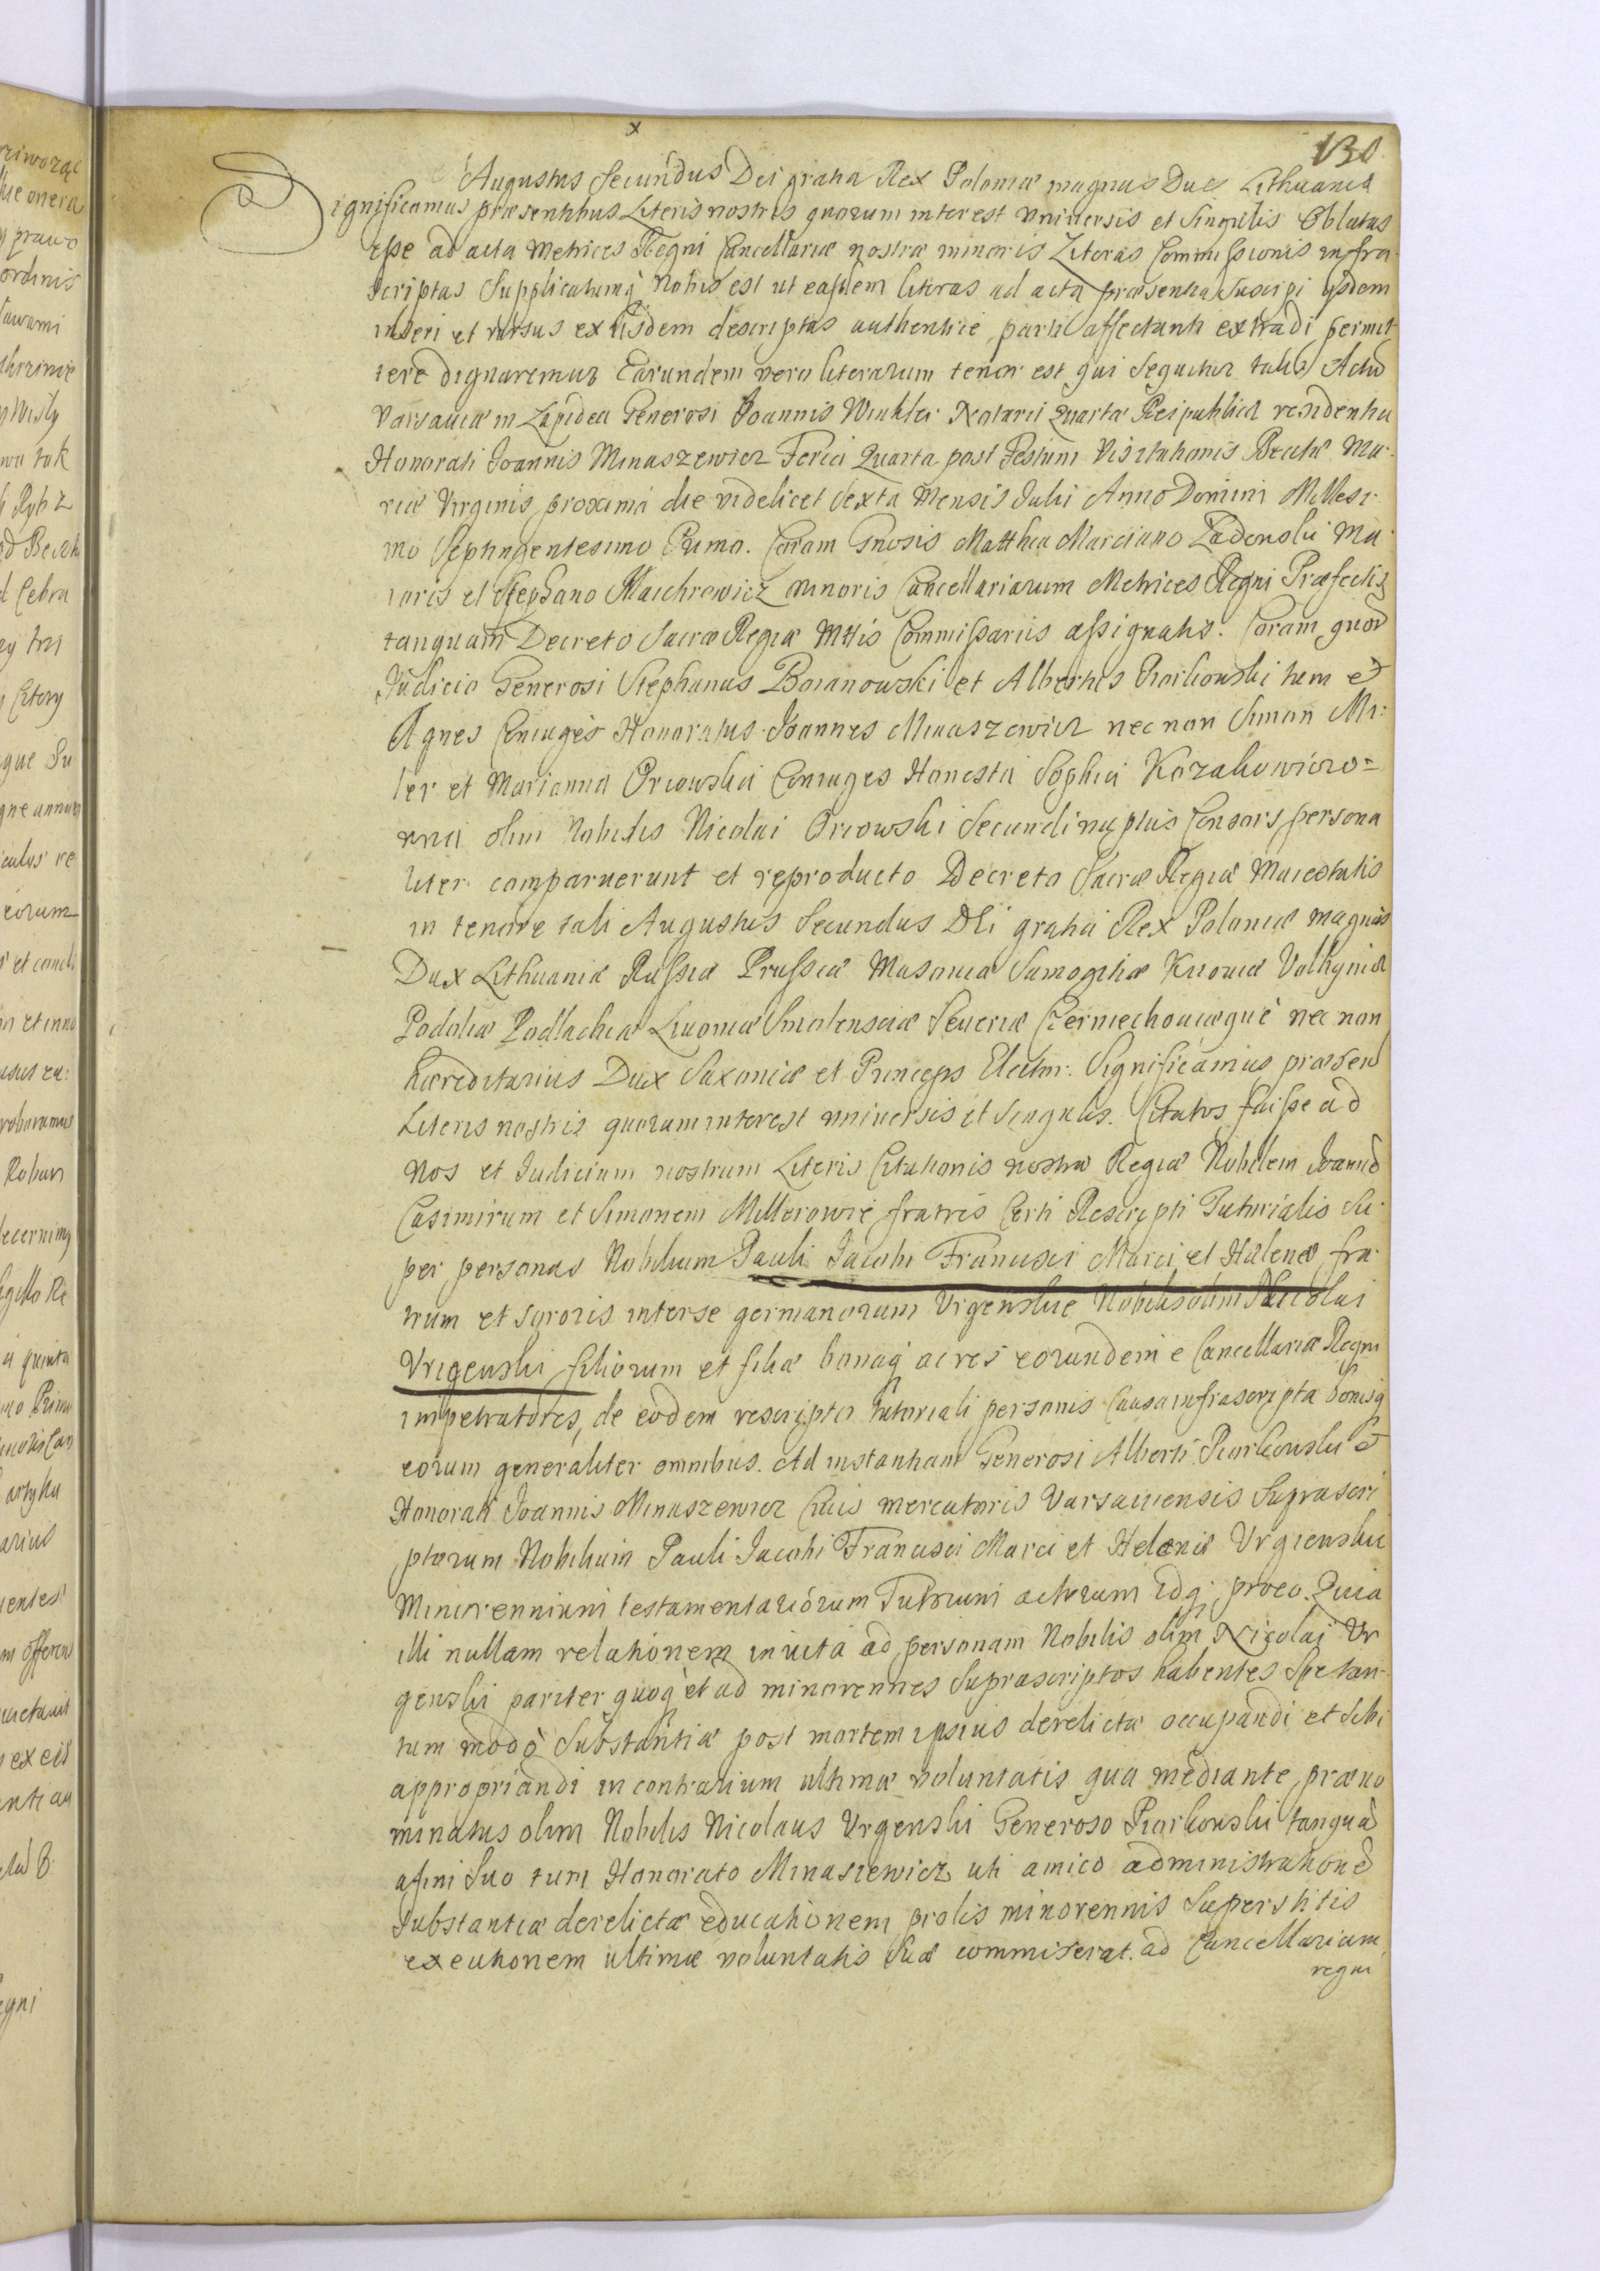 130
Augustus Secundus Dei gratia Rex Poloniæ magnus Dux Lithuaniæ
Significamus præsentibus Literis nostris quorum interest universis et Singulis Oblatas
esse ad acta Metrices Regni Cancellariæ nostræ minoris Literas Commissionis infra
scriptas Supplicatumq Nobis est ut easdem literas ad acta præsentia Suscipi ijsdem
inseri et rursus ex iisdem descriptas authentice parti affectanti extradi permit
tere dignaremur Earundem vero literarum tenor est qui Sequitur talis Actū
Varsaviæ in Lapidea Generosi Joannis Winkler Notarii Quartæ Reipublicæ residentia
Honorati Joannis Minaszewicz Feria Quarta post Festum Visitationis Beatæ Ma-
riæ Virginis proxima die videlicet Sexta Mensis Julii Anno Domini Millesi-
mo Septingentesimo Primo. Coram Gnosis Matthia Marciano Ladowski Ma-
ioris et Stephano Maichrowicz minoris Cancellariarum Metrices Regni Præfectis
tanquam Decreto Sacræ Regiæ Mttis Commissariis assignatis. Coram quoū
Judicio Generosi Stephanus Boianowski et Albertus Piorkowski tum et
Agnes Coniuges Honoratus Joannes Minaszewicz nec non Simon Mi-
ler et Marianna Orłowska Coniuges Honesta Sophia Kozakowiczo=
wna olim Nobilis Nicolai Orłowski Secundi nuptus Consors persona
liter comparuerunt et reproducto Decreto Sacræ Regiæ Maiestatis
in tenore tali Augustus Secundus Dei gratia Rex Poloniæ magnus
Dux Lithuaniæ Russiæ Prussiæ Masoviæ Samogitiæ Kijoviæ Volhyniæ
Podoliæ Podlachiæ Livoniæ Smolensciæ Severiæ Czerniechoviæque nec non
hæreditarius Dux Saxoniæ et Princeps Elector. Significamus præsen
Literis nostris quorum interest universis et Singulis. Citatos fuisse ad
Nos et Judicium nostrum Literis Citationis nostræ Regiæ Nobilem Joannē
Casimirum et Simonem Millerowie fratres Certi Rescripti Tutorialis Su-
per personas Nobilium Pauli Jacobi Francisci Marci et Helenæ fra-
trum et sororis interse germanorum Urgenskie Nobilis olim Nicolai
Urgenski filiorum et filiæ bonaq ac res eorundem e Cancellaria Regni
impetratores, de eodem rescripto tutoriali personis Causa infrascripta bonisq
eorum generaliter omnibus. Ad instantiam Generosi Alberti Piorkowski et
Honorati Joannis Minaszewicz Civis mercatoris Varsaviensis Suprascri
ptorum Nobilium Pauli Jacobi Francisci Marci et Helenæ Urgienskie
Minorennium testamentariorum Tutorum actorum Idq; proeo. Quia
illi nullam relationem in vita ad personam Nobilis olim Nicolai Ur
genski pariter quoq et ad minorennes Suprascriptos habentes Spe tan-
tum modo Substantiæ post mortem ipsius derelictæ occupandi et Sibi
appropriandi in contrarium ultimæ voluntatis qua mediante præno
minatus olim Nobilis Nicolaus Urgenski Generoso Piorkowski tanquā
afini Suo tum Honorato Minasiewicz uti amico administrationē
Substantiæ derelictæ educationem prolis minorennis Superstitis
executionem ultimæ voluntatis Suæ commiserat. ad Cancellariam
regni